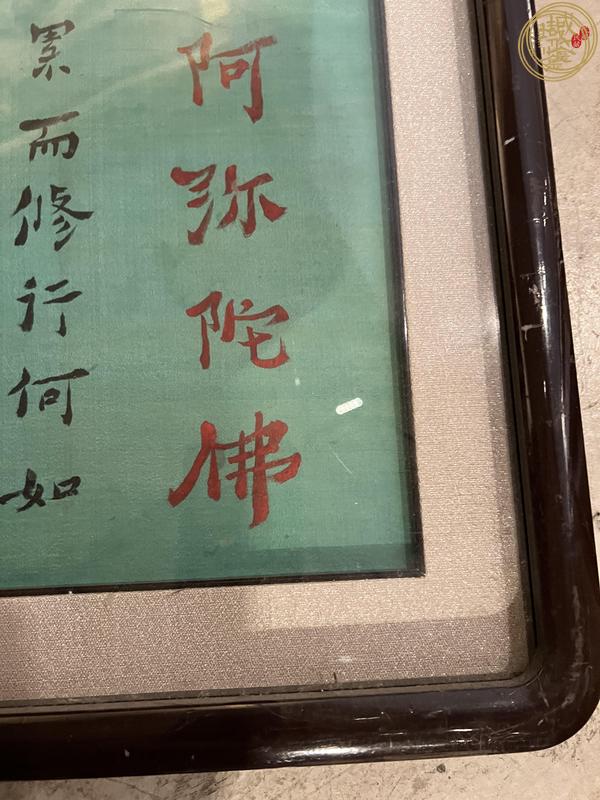 阿弥陀佛
累而修行何如